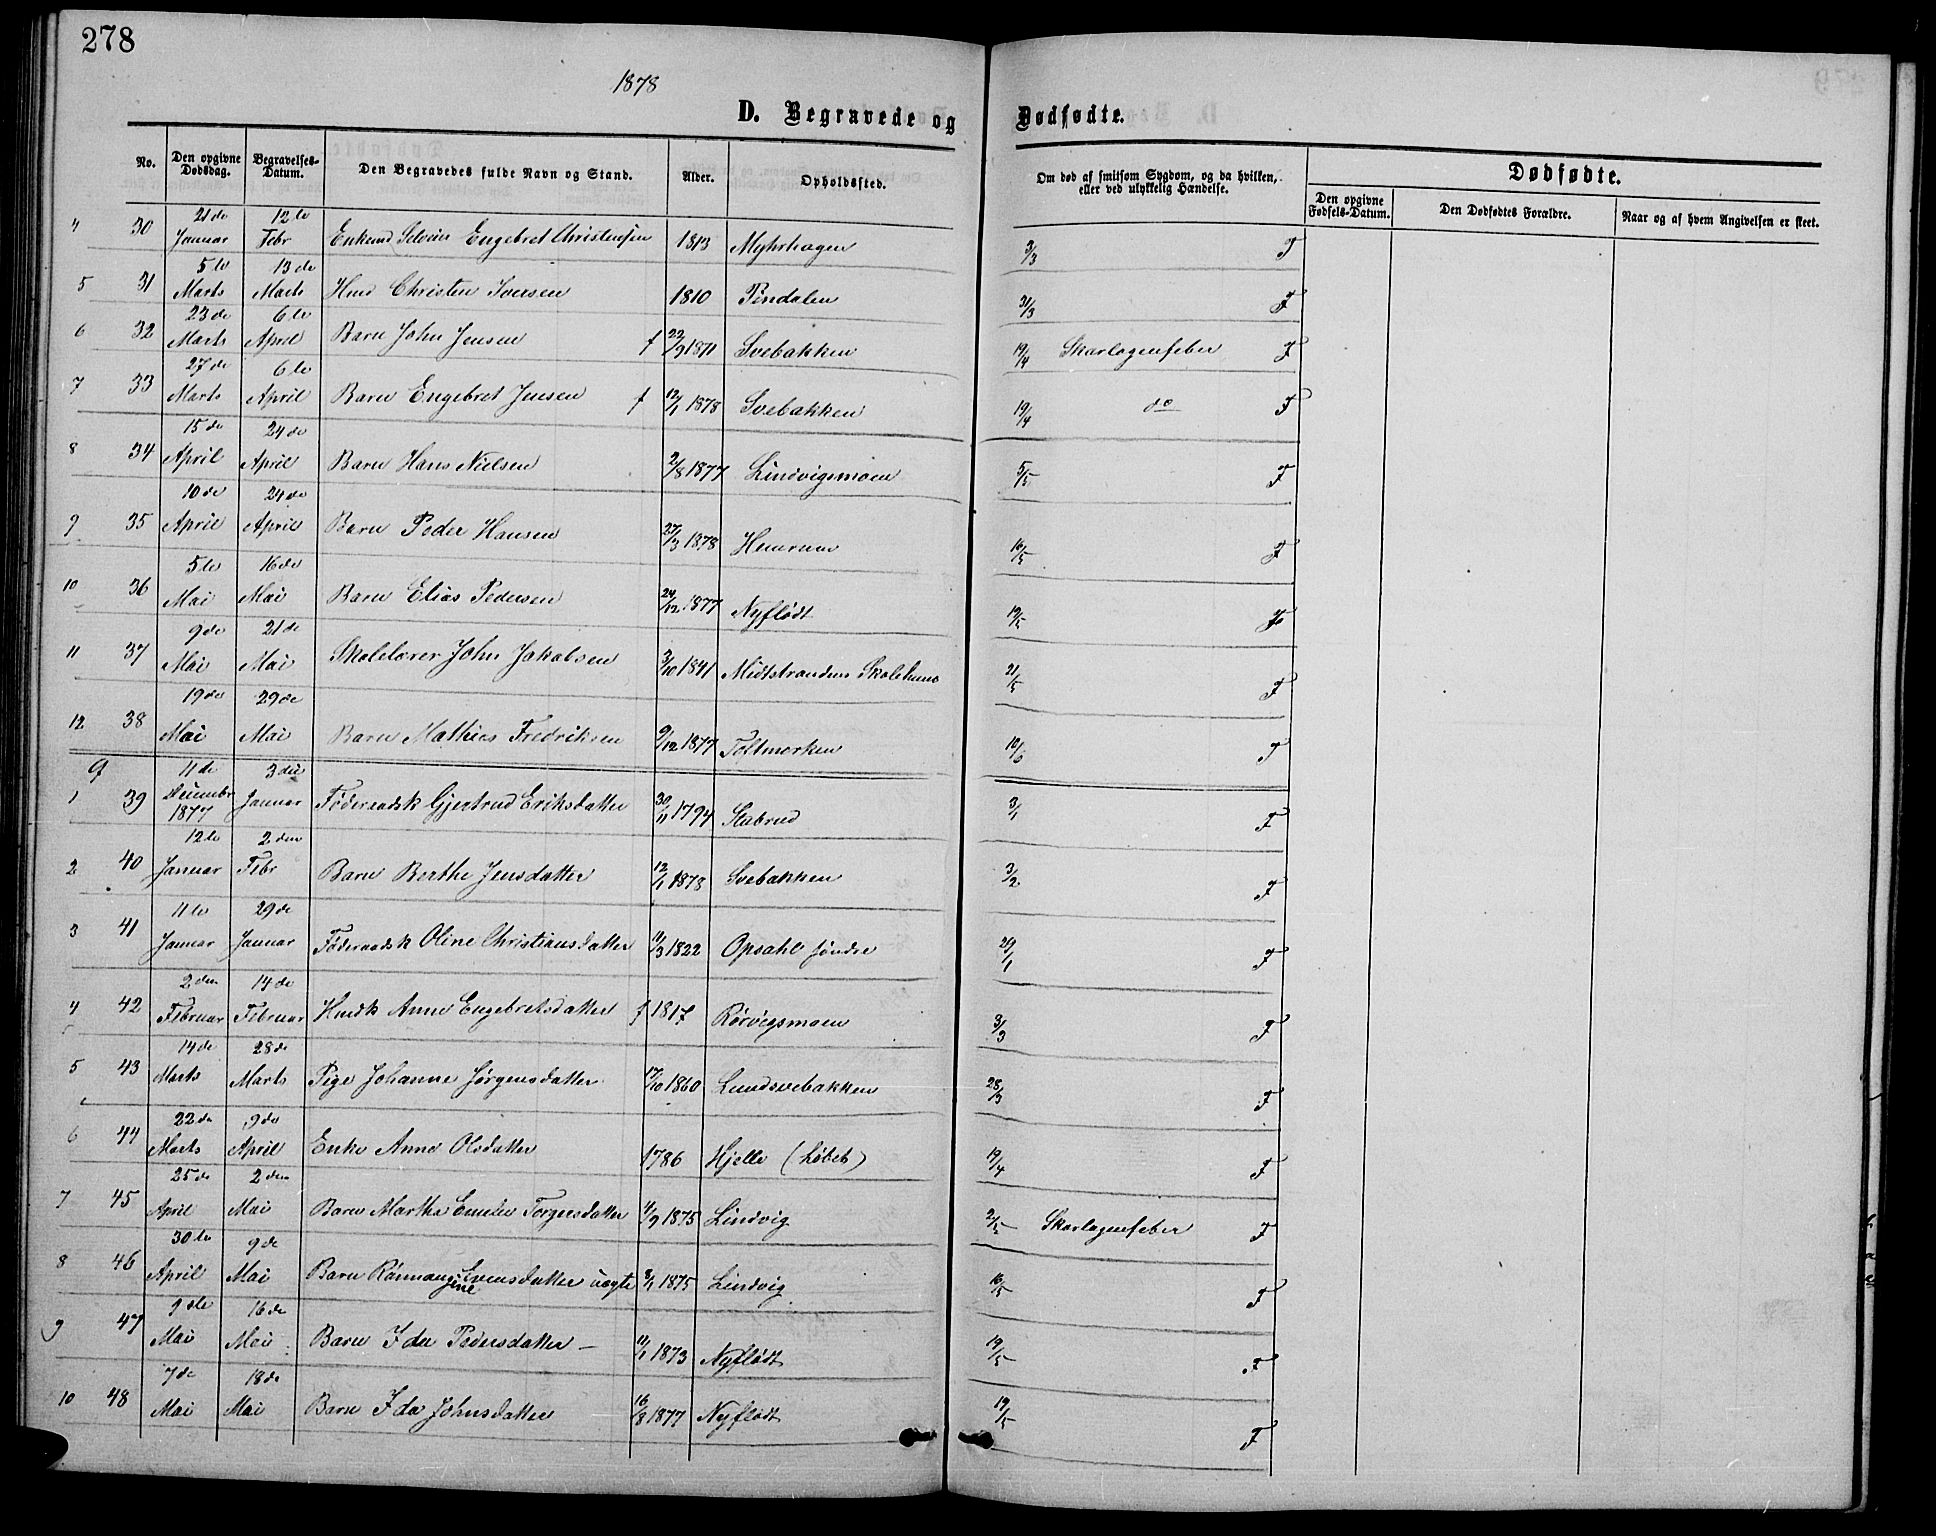 278
1878
D. Begravede og Dødfødte.
No. Den opgivne Dødsdag. Begravelses-Datum. Den Begravedes fulde Navn og Stand. Alder. Opholdssted. Om død af smitsom Sygdom, og da hvilken, eller ved ulykkelig Hændelse. Dødfødte.
Den opgivne Fødsels-Datum. Den Dødfødtes Forældre. Naar og af hvem Angivelsen er skeet.
4 30 21de Januar 12te Febr Engebret Christensen 1813 Myhrhagen 3/3 F
5 31 5te Marts 13de Marts Christen Iversen 1810 Pindalen 31/3 F
6 32 23de Marts 6te April Barn John Jensen f 22/9 1871 Svebakken 19/4 Skarlagenfeber F
7 33 27de Marts 6te April Barn Engebret Jensen f 12/1 1878 Svebakken 19/4 do F
8 34 15de April 24de April Barn Hans Nielsen 2/8 1877 Lindvigsmoen 5/5 F
9 35 10de April 24de April Barn Peder Hansen 27/3 1878 16/5 F
10 36 5te Mai 16de Mai Barn Elias Pedersen 24/12 1877 Nyflödt 19/5 F
11 37 9de Mai 21de Mai Skolelærer John Jakobsen 3/10 1841 Midtstrandens Skolehuus 21/5 F
12 38 19de Mai 29de Mai Barn Mathias Fredriksen 9/12 1877 Toltmorken 10/6 F
Q
1 39 11de Decembr 1877 3die Januar Føderaadsk Gjertrud Eriksdatter 30/11 1794 Slabrud 3/1 F
2 40 12te Januar 2den Febr Barn Berthe Jensdatter 12/1 1878 Svebakken 3/2 F
3 41 11te Januar 29de Januar Føderaadsk Oline Christiansdatter 11/3 1822 Opsahl søndre 29/1 F
4 42 2den Februar 14de Februar Huusk Anne Engebretsdatter f 1817 Rörvigsmoen 3/3 F
5 43 14de Marts 28de Marts Pige Johanne Jørgensdatter 17/10 1860 Lundsvebakken 28/3 F
6 44 22de Marts 9de April Enke Anne Olsdatter 1786 Hjelle (Løbet) 19/4 F
7 45 25de April 2den Mai Barn Marthe Emelie Torgersdatter 11/9 1875 Lindvig 2/5 Skarlagenfeber F
8 46 30te April 9de Mai Barn Rönnaug Jine Svensdatter uægte 8/1 1875 Lindvig 16/5 F
9 47 9de Mai 16de Mai Barn Ida Pedersdatter 11/1 1873 Nyflödt 19/5 F
10 48 7de Mai 18de Mai Barn Ida Johnsdatter 16/8 1877 Nyflödt 19/5 F